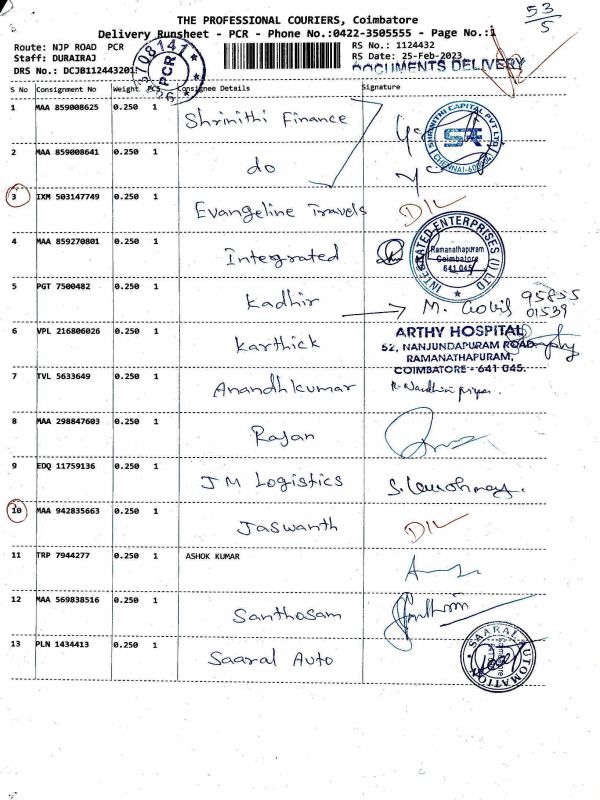 53
5
THE PROFESSIONAL COURIERS, Coimbatore
Delivery Runsheet - PCR - Phone No.:0422-3505555 - Page No.:1
Route: NJP ROAD PCR
RS No.: 1124432
Staff: DURAIRAJ
RS Date: 25-Feb-2023
DRS No.: DCJB1124432015
DOCUMENTS DELIVERY
PCR
S No Consignment No Weight PCS Consignee Details Signature
1 MAA 859008625 0.250 1 Shrinithi Finance
SHRINITHI CAPITAL PVT LTD
2 MAA 859008641 0.250 1 do
3 IXM 503147749 0.250 1 Evangeline Travels D/L
4 MAA 859270801 0.250 1 Integrated
INTEGRATED ENTERPRISES (I) LTD
Ramanathapuram
Coimbatore
641 045
5 PGT 7500482 0.250 1 Kadhir
95855
01539
6 VPL 216806026 0.250 1 Karthick
ARTHY HOSPITAL
52, NANJUNDAPURAM ROAD
RAMANATHAPURAM,
COIMBATORE - 641 045.
7 TVL 5633649 0.250 1 Anandhkumar
8 MAA 298847603 0.250 1 Rajan
9 EDQ 11759136 0.250 1 JM Logistics
10 MAA 942835663 0.250 1 Jaswanth D/L
11 TRP 7944277 0.250 1 ASHOK KUMAR
12 MAA 569838516 0.250 1 Santhosam
13 PLN 1434413 0.250 1 Saaral Auto
SAARAL AUTOMATION